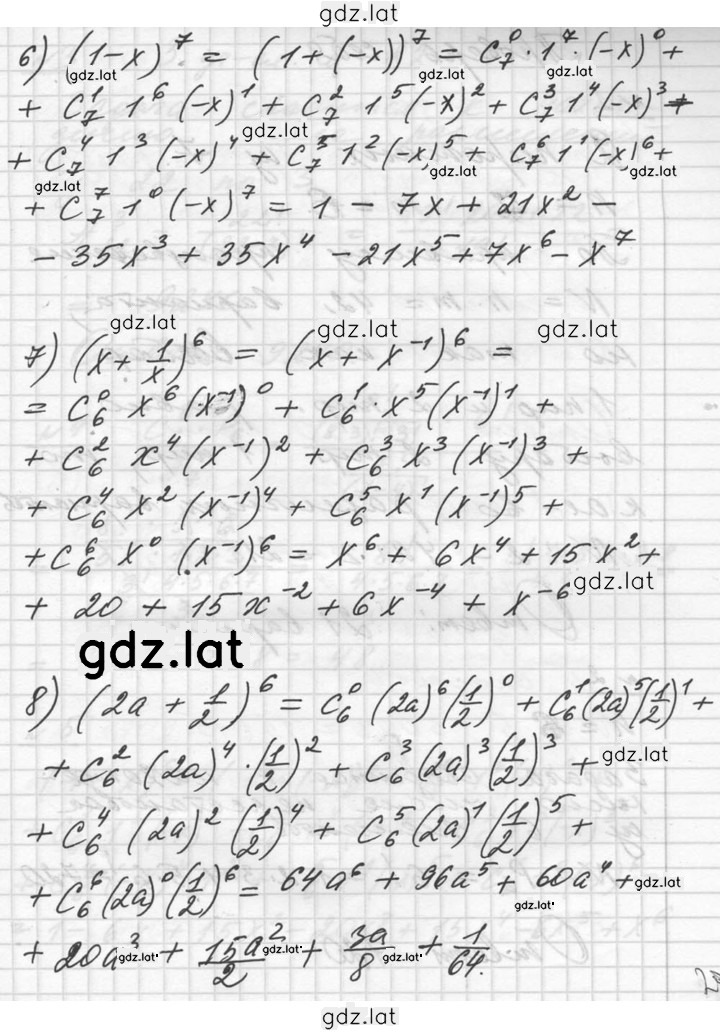 gdz.lat
6) (1-x)⁷ = (1+(-x))⁷ = C₇⁰·1⁷·(-x)⁰ +
gdz.lat gdz.lat gdz.lat
+ C₇¹ 1⁶ (-x)¹ + C₇² 1⁵ (-x)² + C₇³ 1⁴ (-x)³ +
gdz.lat
+ C₇⁴ 1³ (-x)⁴ + C₇⁵ 1² (-x)⁵ + C₇⁶ 1¹ (-x)⁶ +
gdz.lat gdz.lat gdz.lat
+ C₇⁷ 1⁰ (-x)⁷ = 1 - 7x + 21x² -
- 35x³ + 35x⁴ - 21x⁵ + 7x⁶ - x⁷
gdz.lat gdz.lat gdz.lat
7) (x + 1/x)⁶ = (x + x⁻¹)⁶ =
= C₆⁰ x⁶ (x⁻¹)⁰ + C₆¹·x⁵ (x⁻¹)¹ +
+ C₆² x⁴ (x⁻¹)² + C₆³ x³ (x⁻¹)³ +
+ C₆⁴ x² (x⁻¹)⁴ + C₆⁵ x¹ (x⁻¹)⁵ +
+ C₆⁶ x⁰ (x⁻¹)⁶ = x⁶ + 6x⁴ + 15x² +
gdz.lat
+ 20 + 15x⁻² + 6x⁻⁴ + x⁻⁶
gdz.lat
8) (2a + 1/2)⁶ = C₆⁰ (2a)⁶ (1/2)⁰ + C₆¹ (2a)⁵ (1/2)¹ +
+ C₆² (2a)⁴·(1/2)² + C₆³ (2a)³ (1/2)³ +
gdz.lat
+ C₆⁴ (2a)² (1/2)⁴ + C₆⁵ (2a)¹ (1/2)⁵ +
+ C₆⁶ (2a)⁰ (1/2)⁶ = 64a⁶ + 96a⁵ + 60a⁴ +
gdz.lat gdz.lat
+ 20a³ + 15a²/2 + 3a/8 + 1/64.
gdz.lat gdz.lat gdz.lat
gdz.lat